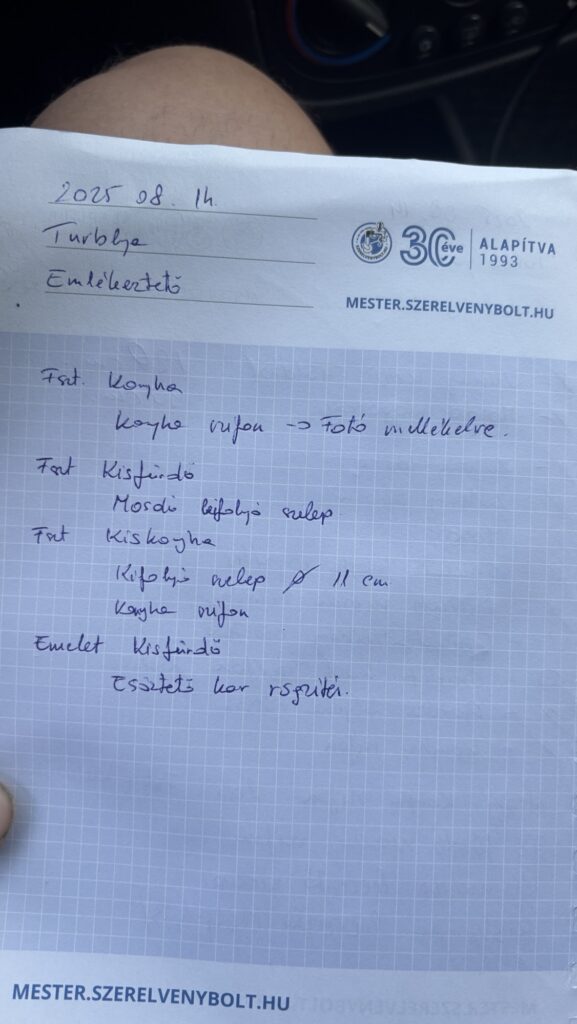 2025 08. 14.
30 éve ALAPÍTVA 1993
Emlékeztető
MESTER.SZERELVENYBOLT.HU
Fszt. Konyha
Konyha szifon -> Fotó mellékelve.
Fszt Kisfürdő
Mosdó lefolyó szelep
Fszt Kiskonyha
Kifolyó szelep Ø 11 cm
Konyha szifon
Emelet Kisfürdő
Esőztető kar rögzítés.
MESTER.SZERELVENYBOLT.HU